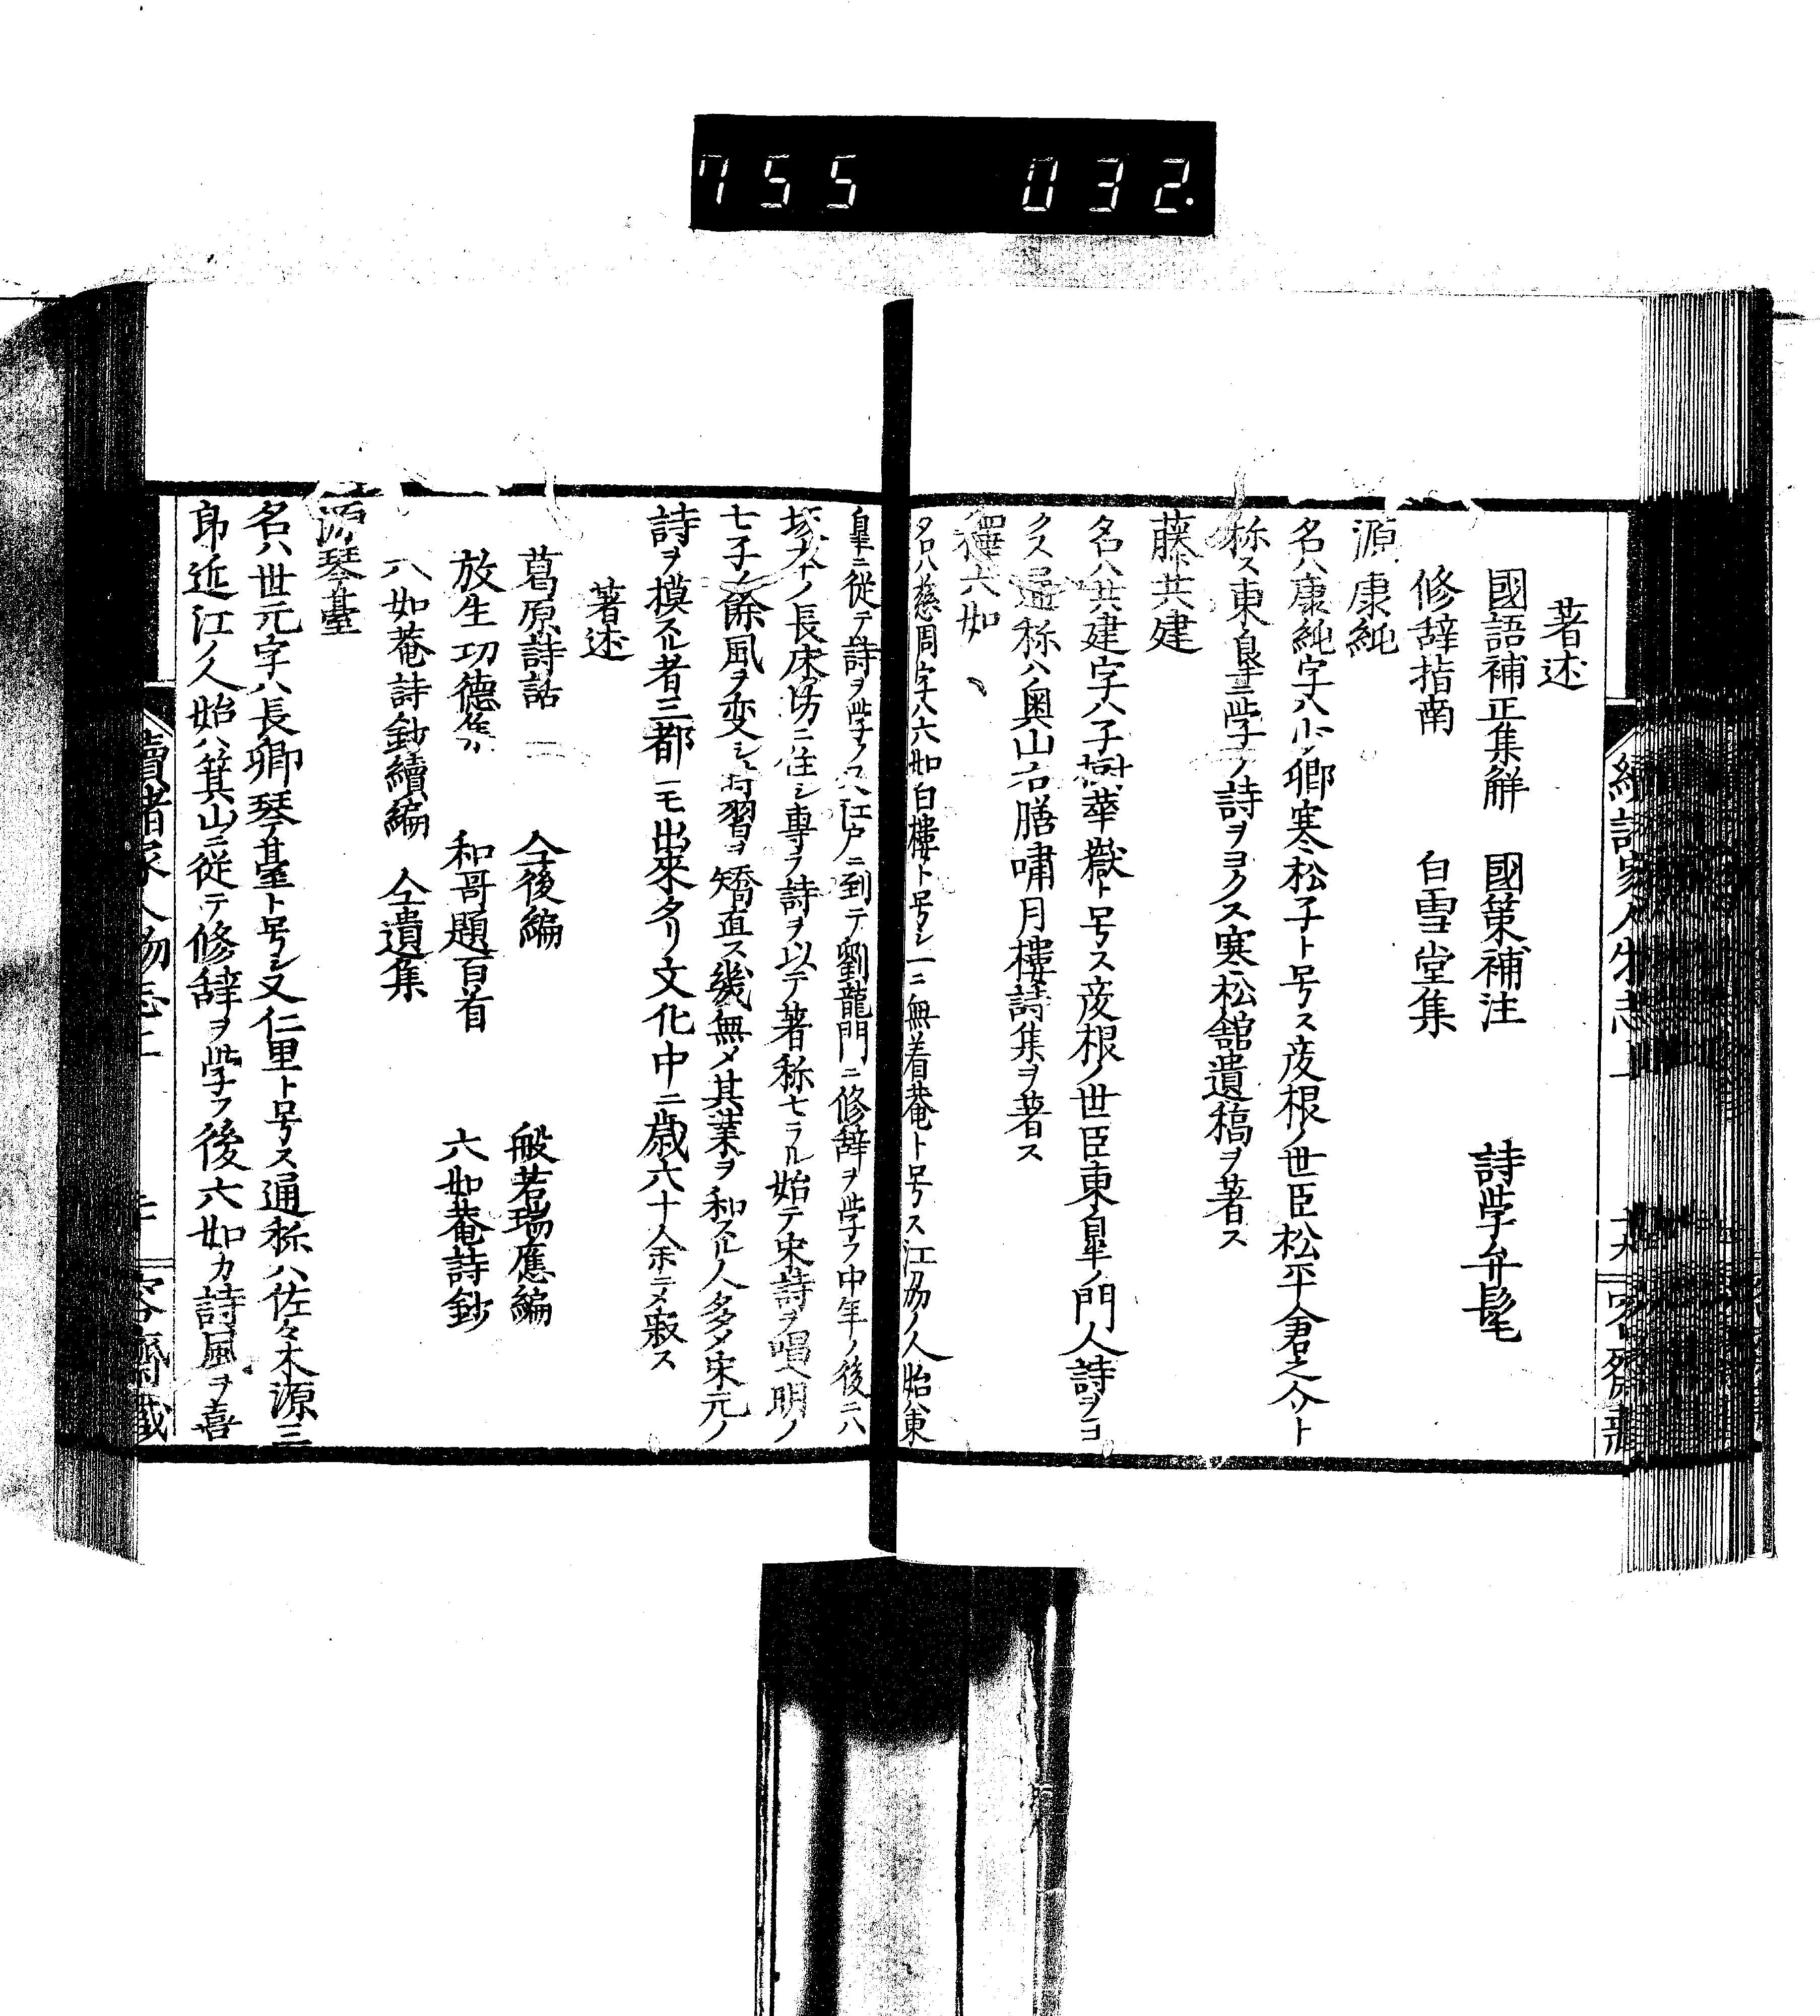 755 032.
著述
國語補正集解 國策補注 詩學弁髦
修辞指南 白雪堂集
源康純
名ハ康純字ハ小卿寒松子ト号ス彦根ノ世臣松平倉之介ト
称ス東皐ニ学ノ詩ヲヨクス寒松舘遺稿ヲ著ス
藤共建
名ハ共建字ハ子樹華嶽ト号ス彦根ノ世臣東皐ノ門人詩ヲヨ
クス通称ハ奥山右膳嘯月樓詩集ヲ著ス
釋六如
名ハ慈周字ハ六如白樓ト号シ一ニ無着菴ト号ス江州ノ人始ハ東
皐ニ従テ詩ヲ学ノ又江戸ニ到テ劉龍門ニ修辞ヲ学フ中年ノ後ニハ
嵯峨ノ長床坊ニ住シ専ラ詩ヲ以テ著称セラル始テ宋詩ヲ唱ヘ明ノ
七子ノ餘風ヲ変シ時習ヲ矯直ス幾無メ其業ヲ和スル人多メ宋元ノ
詩ヲ模スル者三都ニモ出来タリ文化中ニ歳六十余ニメ寂ス
著述
葛原詩話 仝後編 般若瑞應編
放生功德集 和哥題百首 六如菴詩鈔
六如菴詩鈔續編 仝遺集
源琴臺
名ハ世元字ハ長卿琴臺ト号シ又仁里ト号ス通称ハ佐々木源三
郎近江ノ人始ハ箕山ニ従テ修辞ヲ学フ後六如カ詩風ヲ喜